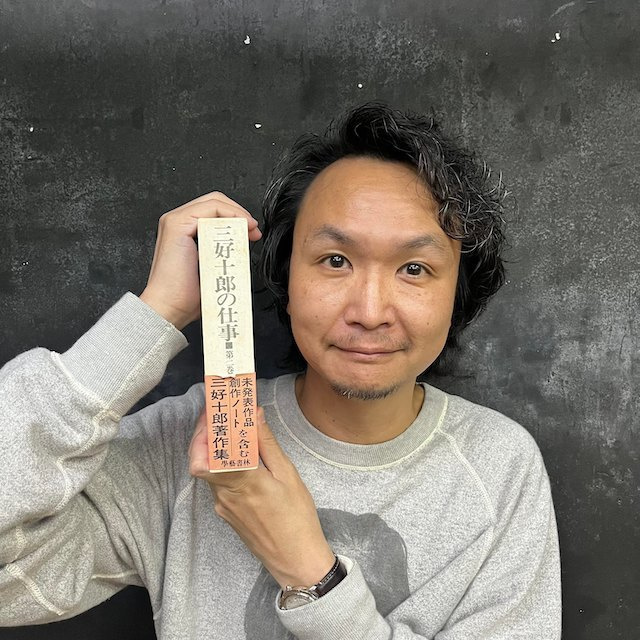 三好十郎の仕事
第二巻
未発表作品
創作ノートを含む
三好十郎著作集
學藝書林